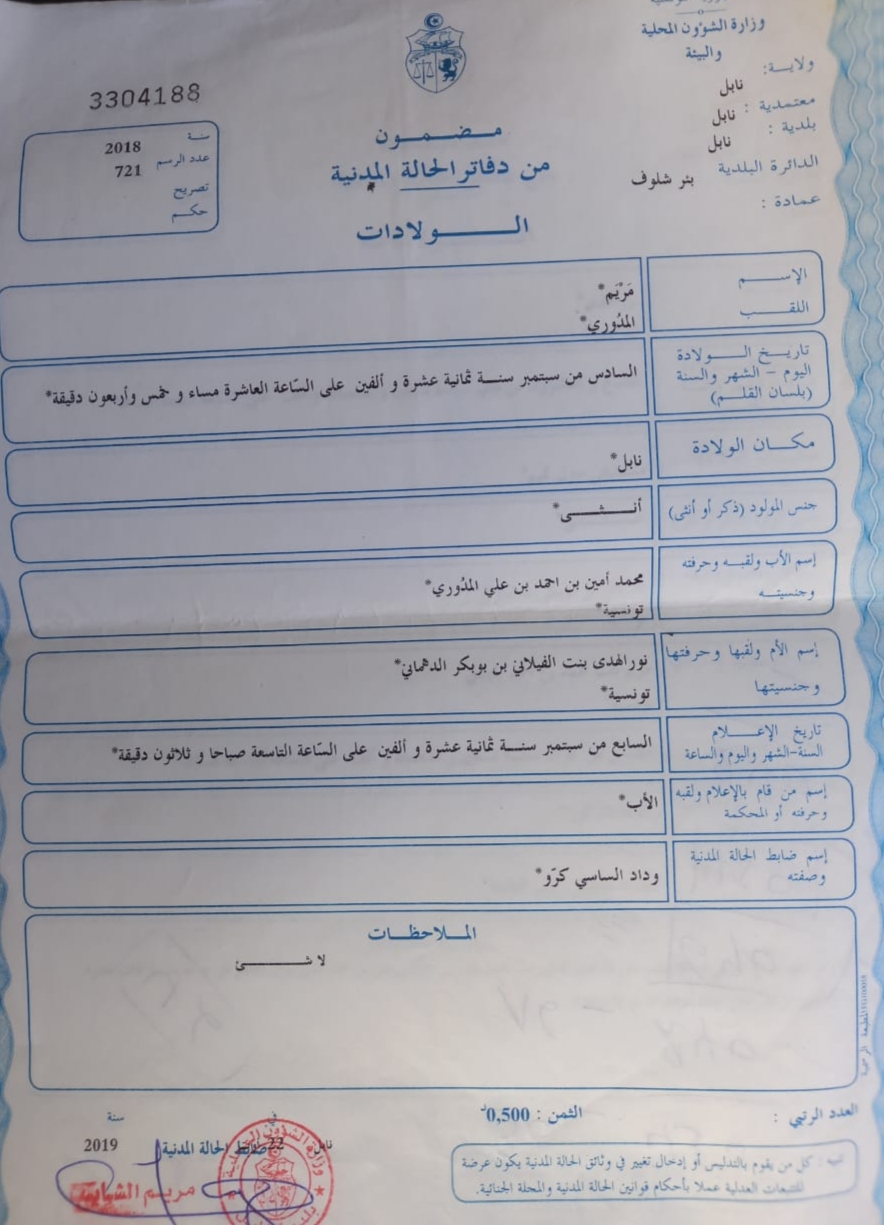 وزارة الشؤون المحلية
والبيئة
ولاية: نابل
معتمدية : نابل
بلدية : نابل
الدائرة البلدية بئر شلوف
عمادة :
3304188
سنة 2018
عدد الرسم 721
تصريح
حكم
مضمون
من دفاتر الحالة المدنية
الولادات
الإسم مَرْيَم*
اللقب المدّوري*
تاريخ الولادة
اليوم – الشهر والسنة
(بلسان القلم)
السادس من سبتمبر سنة ثمانية عشرة و ألفين على السّاعة العاشرة مساء و خمس وأربعون دقيقة*
مكان الولادة
نابل*
جنس المولود (ذكر أو أنثى)
أنثى*
إسم الأب ولقبه وحرفته
وجنسيته
محمد أمين بن احمد بن علي المدّوري*
تونسية*
إسم الأم ولقبها وحرفتها
وجنسيتها
نورالهدى بنت الفيلاني بن بوبكر الدهماني*
تونسية*
تاريخ الإعلام
السنة-الشهر واليوم والساعة
السابع من سبتمبر سنة ثمانية عشرة و ألفين على السّاعة التاسعة صباحا و ثلاثون دقيقة*
إسم من قام بالإعلام ولقبه
وحرفته أو المحكمة
الأب*
إسم ضابط الحالة المدنية
وصفته
وداد الساسي كرّو*
الملاحظات
لا شئ
العدد الرتبي :
الثمن : 0,500د
تنبيه : كل من يقوم بالتدليس أو إدخال تغيير في وثائق الحالة المدنية يكون عرضة
للتتبعات العدلية عملا بأحكام قوانين الحالة المدنية والمجلة الجنائية.
نابل في 22
سنة 2019
ضابط الحالة المدنية
مريم